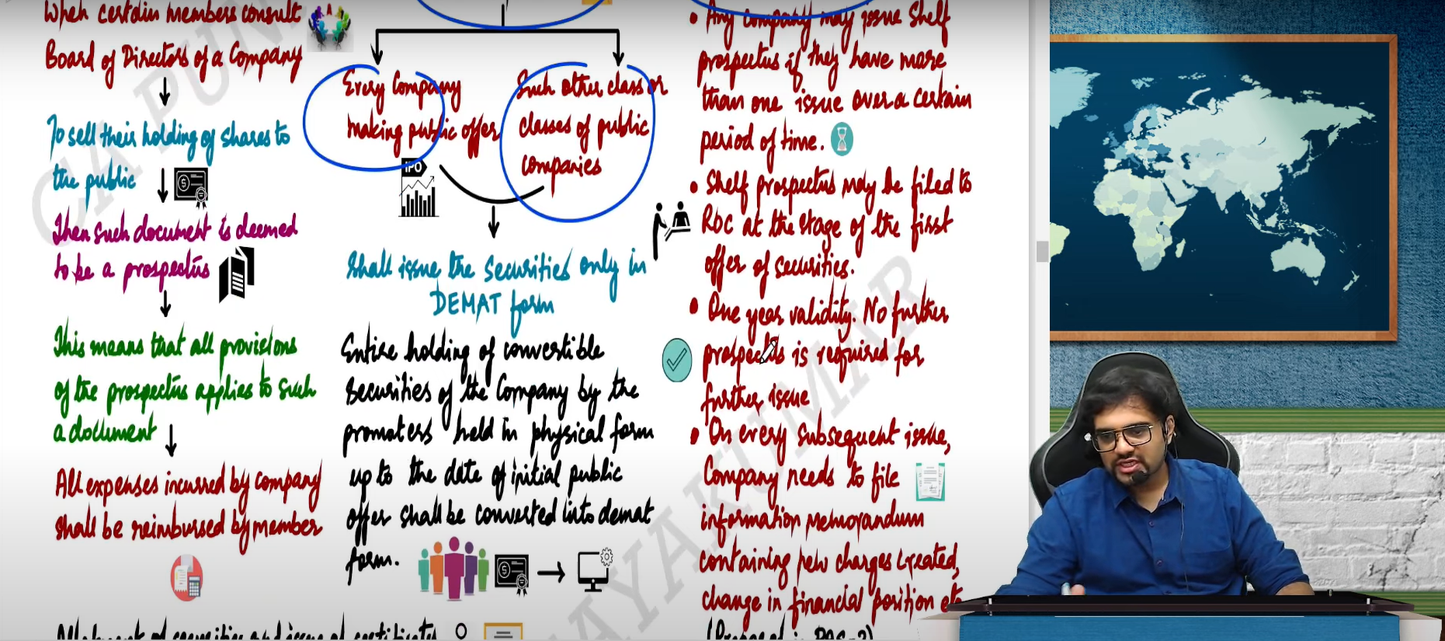 When certain members consult
Board of Directors of a Company
To sell their holding of shares to
the public
Then such document is deemed
to be a prospectus
This means that all provisions
of the prospectus applies to such
a document
All expenses incurred by company
shall be reimbursed by member
Every Company
making public offer
Such other class or
classes of public
companies
IPO
Shall issue the securities only in
DEMAT form
Entire holding of convertible
securities of the Company by the
promoters held in physical form
up to the date of initial public
offer shall be converted into demat
form.
• Any company may issue Shelf
prospectus if they have more
than one issue over a certain
period of time.
• Shelf prospectus may be filed to
RoC at the stage of the first
offer of securities.
• One year validity. No further
prospectus is required for
further issue
• On every subsequent issue,
Company needs to file
information memorandum
containing new charges created,
change in financial position etc
Allotment of securities and issue of certificates